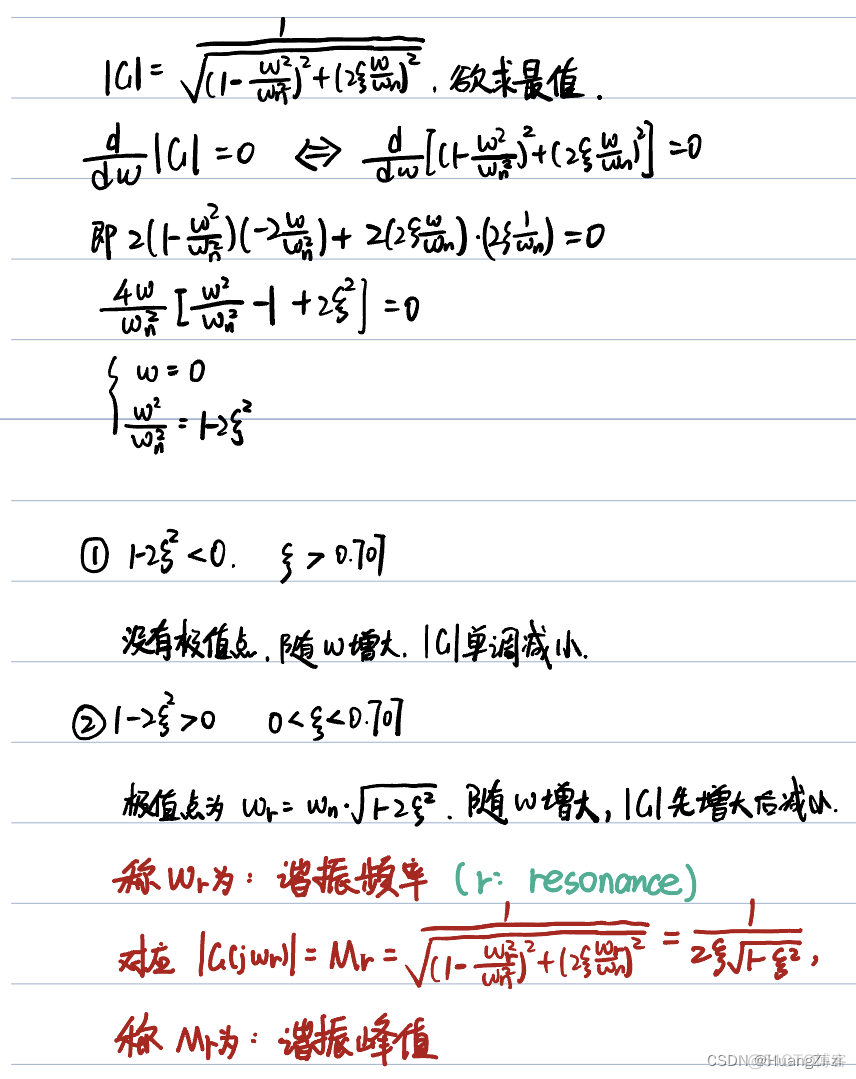 |G| = 1/√((1-ω²/ωn²)²+(2ξω/ωn)²) . 欲求最值.
d/dω|G| = 0 ⇔ d/dω[(1-ω²/ωn²)²+(2ξω/ωn)²] = 0
即 2(1-ω²/ωn²)(-2ω/ωn²) + 2(2ξω/ωn)·(2ξ1/ωn) = 0
4ω/ωn² [ω²/ωn² -1 + 2ξ²] = 0
{ ω = 0
ω²/ωn² = 1-2ξ²
① 1-2ξ² < 0. ξ > 0.707
没有极值点. 随ω增大. |G|单调减小.
② 1-2ξ² > 0 0 < ξ < 0.707
极值点为 ωr = ωn·√(1-2ξ²) . 随ω增大, |G|先增大后减小.
称ωr为: 谐振频率 (r: resonance)
对应 |G(jωr)| = Mr = 1/√((1-ωr²/ωn²)²+(2ξωr/ωn)²) = 1/(2ξ√(1-ξ²)) ,
称 Mr为: 谐振峰值
CSDN @HuangZi.zi